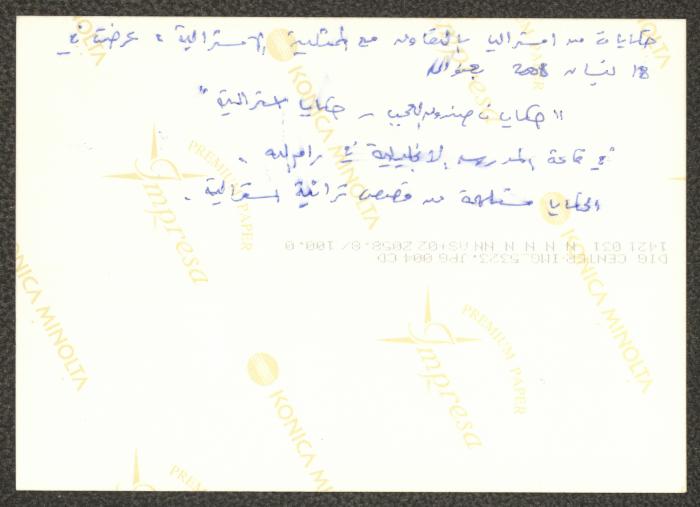 حكايات من استراليا بالتعاون مع الممثلية الاسترالية، عرضت في
18 نيسان 2008 بعنوان
"حكايات صندوق العجب - حكايا استرالية"
في قاعة المدرسة الانجيلية في رام الله.
الحكايا مستلهمة من قصص تراثية استرالية.
1421 031 N N N N N NN AS+02 2058.8/ 100.0
DIG CENTER-IMG_5323.JPG 004 CD
KONICA MINOLTA
PREMIUM PAPER
Impresa
KONICA MINOLTA
KONICA MINOLTA
PREMIUM PAPER
Impresa
KONICA MINOLTA
Impresa